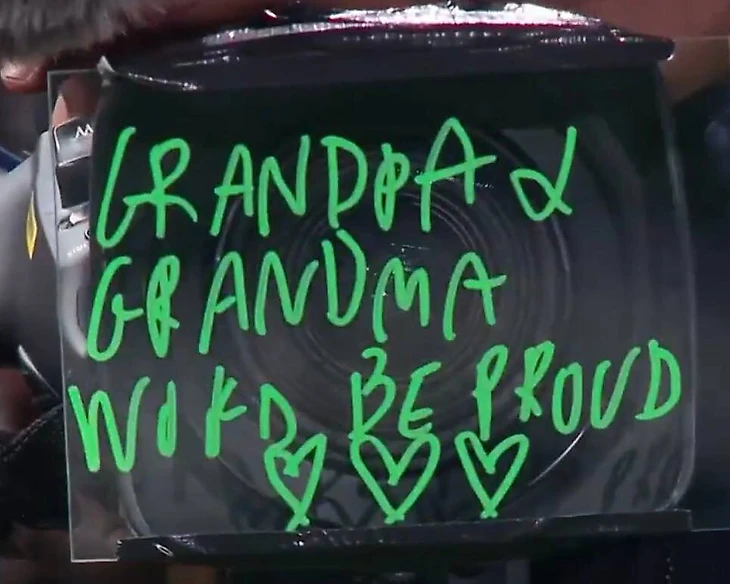 GRANDPA &
GRANDMA
WOULD BE PROUD